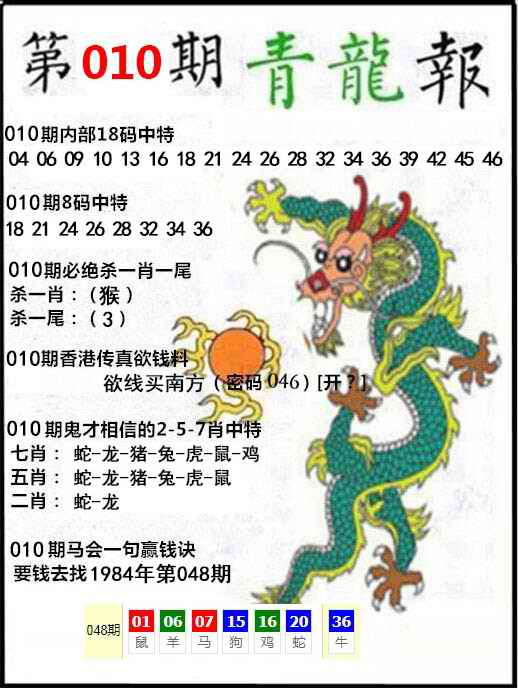 第010期青龍報
010期内部18码中特
04 06 09 10 13 16 18 21 24 26 28 32 34 36 39 42 45 46
010期8码中特
18 21 24 26 28 32 34 36
010期必绝杀一肖一尾
杀一肖：（猴）
杀一尾：（3）
010期香港传真欲钱料
欲线买南方（密码046）[开？]
010期鬼才相信的2-5-7肖中特
七肖：蛇-龙-猪-兔-虎-鼠-鸡
五肖：蛇-龙-猪-兔-虎-鼠
二肖：蛇-龙
010期马会一句赢钱诀
要钱去找1984年第048期
048期 01 06 07 15 16 20 36
鼠 羊 马 狗 鸡 蛇 牛